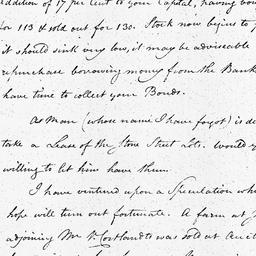 addition of 17 per Cent to your Capital, having bou
for 113 & sold out for 130. Stock now begins to
it should sink very low, it may be adviseable
repurchase borrowing money from the Bank
have time to collect your Bonds.
As Man (whose name I have forgot) is de
take a Lease of the Stone Street Lots. Would y
willing to let him have them.
I have ventured upon a Speculation wh
hope will turn out fortunate. A farm at
adjoining Mr V. Cortlandts was sold at Auct